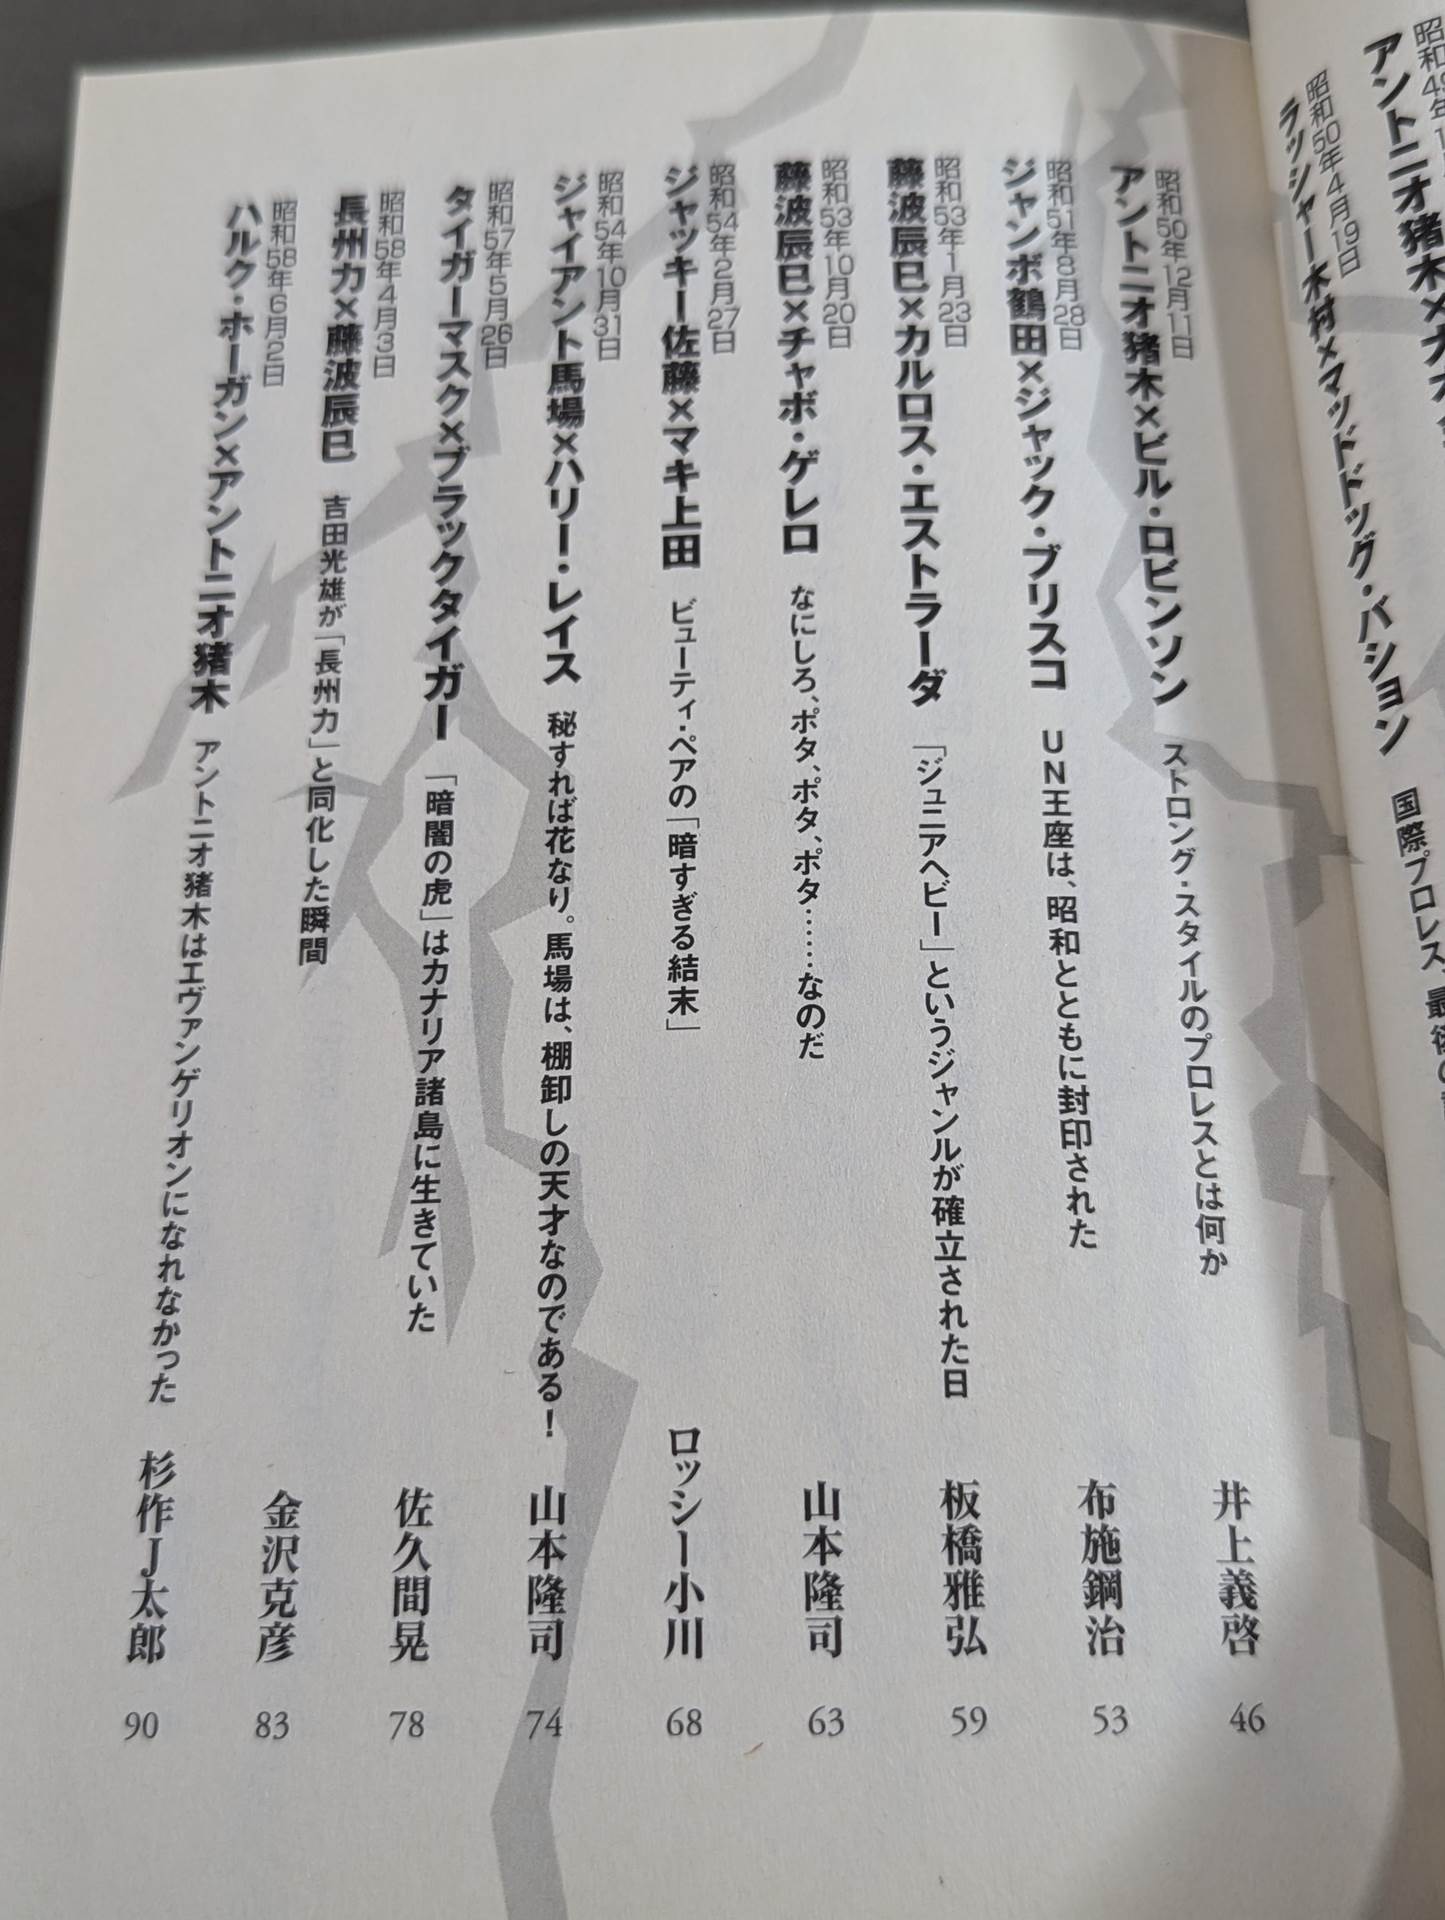 昭和49年1
アントニオ猪木×大
昭和50年4月19日
ラッシャー木村×マッドドッグ・バション 国際プロレス、最
昭和50年12月11日
アントニオ猪木×ビル・ロビンソン ストロング・スタイルのプロレスとは何か 井上義啓 46
昭和51年8月28日
ジャンボ鶴田×ジャック・ブリスコ UN王座は、昭和とともに封印された 布施鋼治 53
昭和53年1月23日
藤波辰巳×カルロス・エストラーダ 「ジュニアヘビー」というジャンルが確立された日 板橋雅弘 59
昭和53年10月20日
藤波辰巳×チャボ・ゲレロ なにしろ、ポタ、ポタ、ポタ……なのだ 山本隆司 63
昭和54年2月27日
ジャッキー佐藤×マキ上田 ビューティ・ペアの「暗すぎる結末」 ロッシー小川 68
昭和54年10月31日
ジャイアント馬場×ハリー・レイス 秘すれば花なり。馬場は、棚卸しの天才なのである！ 山本隆司 74
昭和57年5月26日
タイガーマスク×ブラックタイガー 「暗闇の虎」はカナリア諸島に生きていた 佐久間晃 78
昭和58年4月3日
長州力×藤波辰巳 吉田光雄が「長州力」と同化した瞬間 金沢克彦 83
昭和58年6月2日
ハルク・ホーガン×アントニオ猪木 アントニオ猪木はエヴァンゲリオンになれなかった 杉作J太郎 90